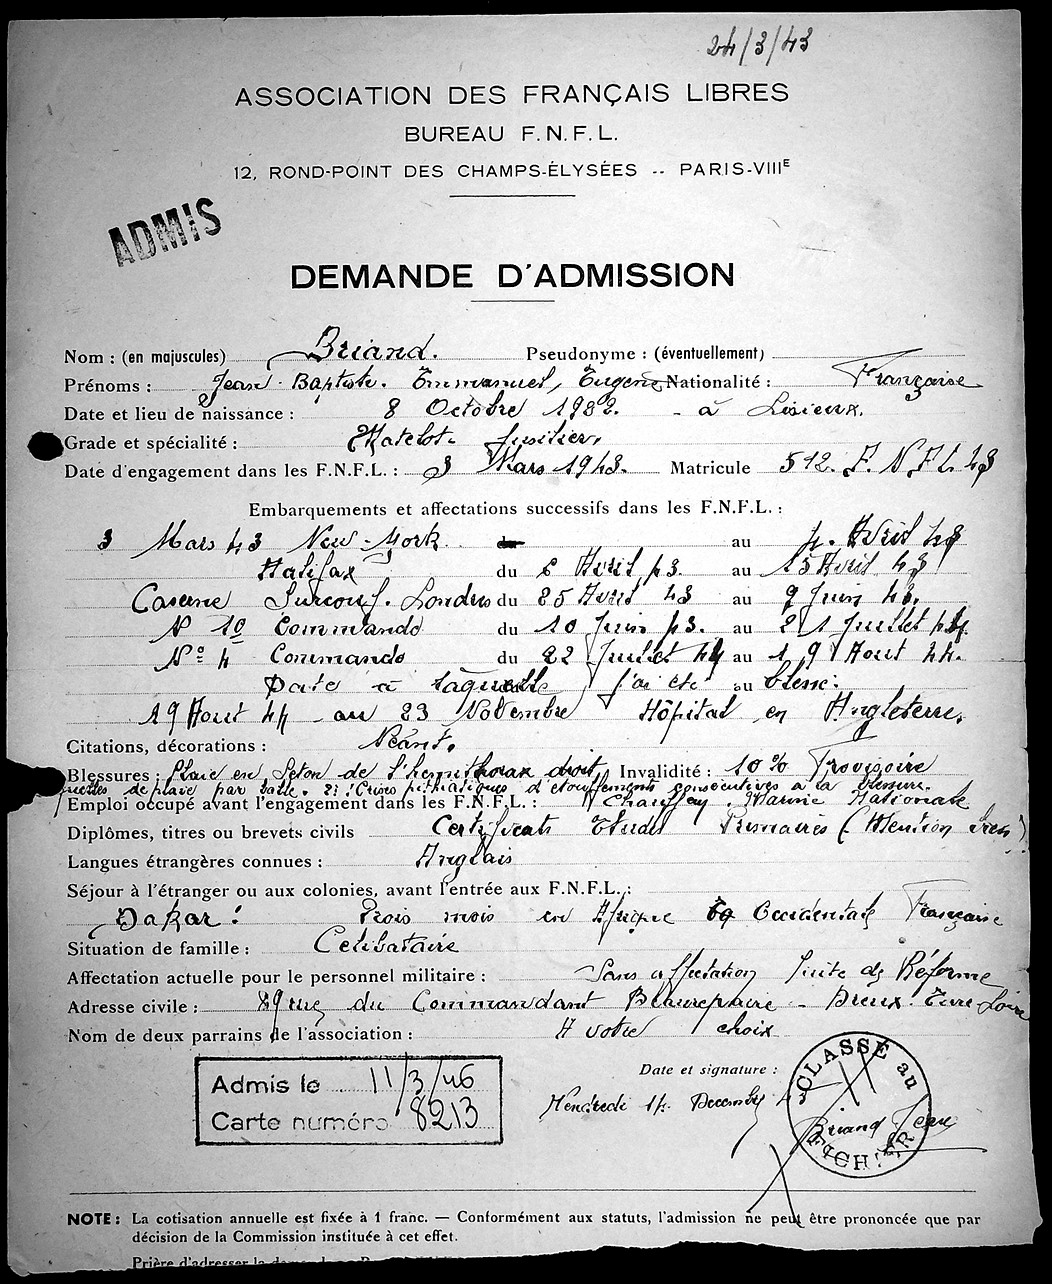 24/3/43
ASSOCIATION DES FRANÇAIS LIBRES
BUREAU F.N.F.L.
12, ROND-POINT DES CHAMPS-ÉLYSÉES -- PARIS-VIIIE
ADMIS
DEMANDE D'ADMISSION
Nom : (en majuscules) Briand. Pseudonyme : (éventuellement)
Prénoms : Jean-Baptiste. Emmanuel, Eugène Nationalité : Française
Date et lieu de naissance : 8 Octobre 1922. - à Lisieux.
Grade et spécialité : Matelot. fusilier.
Date d'engagement dans les F.N.F.L. : 3 Mars 1943. Matricule 512. F.N.F.L. 43
Embarquements et affectations successifs dans les F.N.F.L. :
3 Mars 43 New-York au 4. Avril 43
Halifax du 6 Avril 43. au 15 Avril 43
Caserne Surcouf. Londres du 25 Avril 43 au 9 Juin 43.
N° 10 Commando du 10 Juin 43. au 21 Juillet 44.
N° 4 Commando du 22 Juillet 44 au 19 Août 44.
Date à laquelle j'ai été au blessé.
19 Août 44 - au 23 Novembre Hôpital en Angleterre.
Citations, décorations : Néant.
Blessures : Plaie en Séton de l'hemithorax droit, Invalidité : 10% Provisoire
de plaie par balle. 2) : Crises pithiatiques d'étouffements consécutives a la blessure.
Emploi occupé avant l'engagement dans les F.N.F.L. : Chauffeur. Marine Nationale
Diplômes, titres ou brevets civils Certificats Etudes Primaires (Mention bien)
Langues étrangères connues : Anglais
Séjour à l'étranger ou aux colonies, avant l'entrée aux F.N.F.L. :
Dakar : Trois mois en Afrique Occidentale Française
Situation de famille : Celibataire
Affectation actuelle pour le personnel militaire : Sans affectation Suite de Réforme
Adresse civile : 29 rue du Commandant Beaurepaire - Dreux. Eure-Loire
Nom de deux parrains de l'association : A votre choix
Admis le 11/3/46
Carte numéro 8213
Date et signature :
Vendredi 14. Decembre
Briand Jean
CLASSÉ au FICHIER
NOTE : La cotisation annuelle est fixée à 1 franc. — Conformément aux statuts, l'admission ne peut être prononcée que par
décision de la Commission instituée à cet effet.
Prière d'adresser la